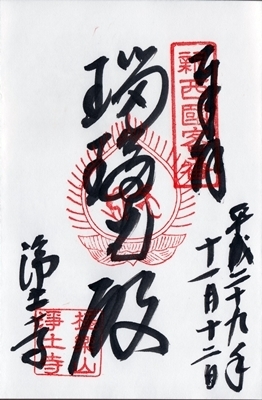 奉拝
新西國客番
平成二十九年
十一月十二日
瑠璃殿
浄土寺
浄土寺